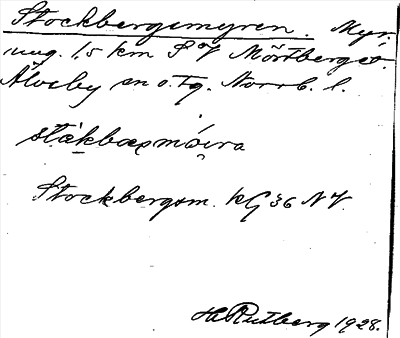 Stockbergsmyren. Myr.
ung. 1,5 km S V Mörtberget.
Älvsby sn o. tg. Norrb. l.
Stockbergsm. kG 36 NV.
H. Rutberg 1928.